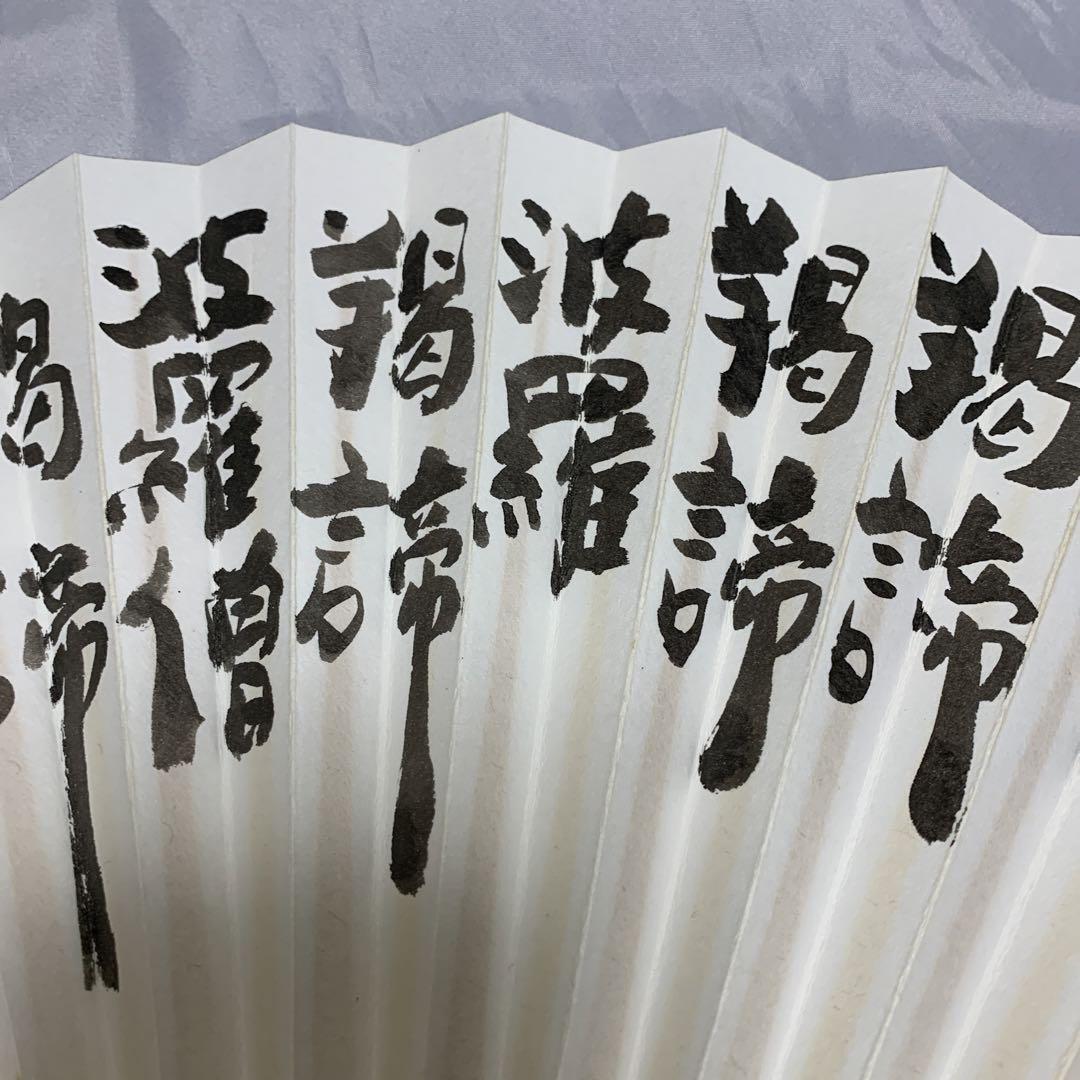 羯諦
羯諦
波羅
羯諦
波羅僧
羯諦